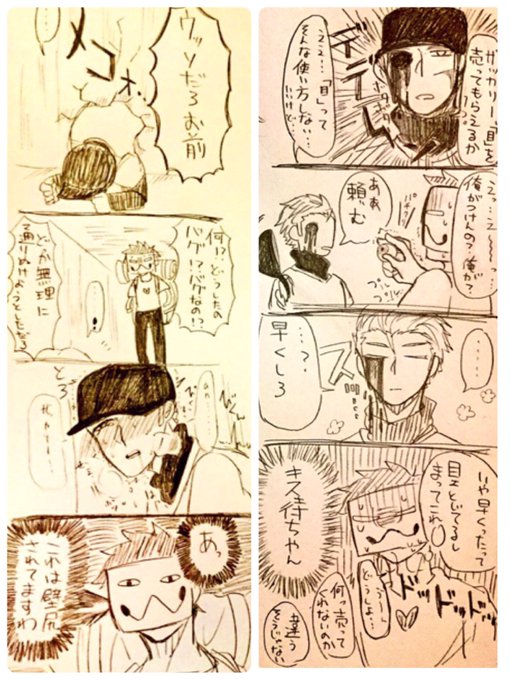 ザッカリー、「目」を
売ってもらえるか
デデーン
ええ…「目」って
そんな使い方しない…
いいけど…
ボロボロ
えっ…え〜〜っ
俺がつけんの?俺が?
ああ
頼む
……
…?
早くしろ
ズ…
いや早くったって
目とじてるし
まってこれ
キス待ちやん
ドッドッドッ
う〜ん
どうしよ…
何?売って
くれないのか
違う
そうじゃない
…
メコォ…
ウッソだろお前
何!?どうしたの
バグ!?バグなの!?
…!
どっか無理に
通りぬけようとしたろ
あっ
これは壁尻
されてますわ